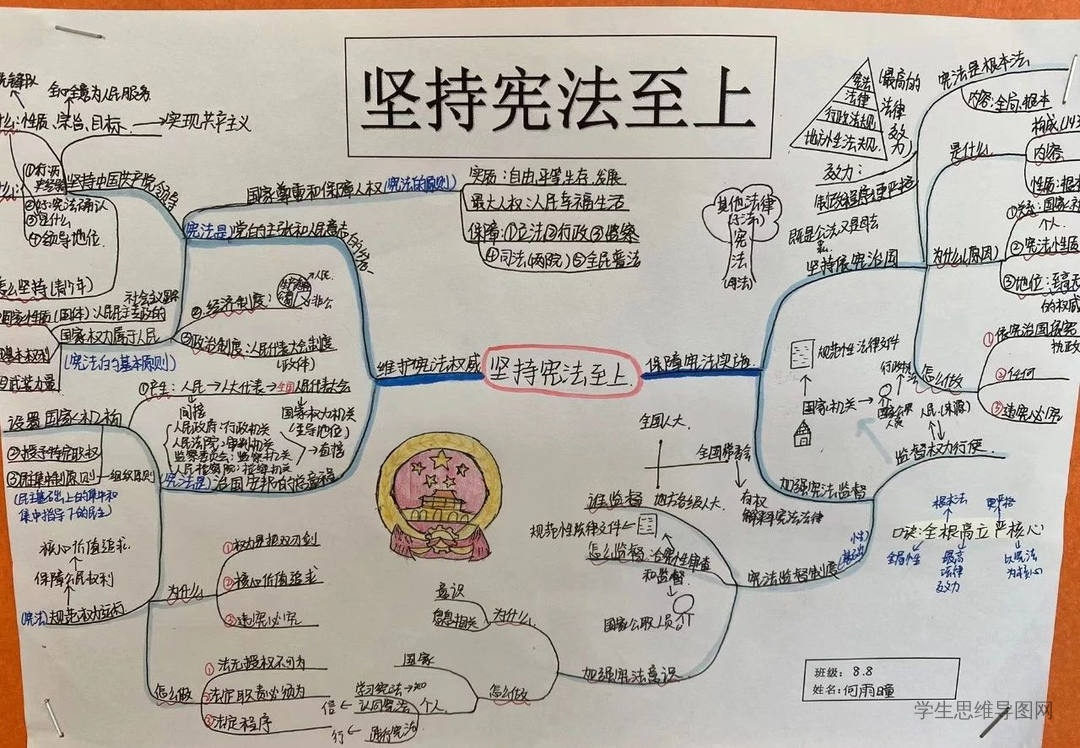 坚持宪法至上
坚持宪法至上
维护宪法权威
全心全意为人民服务
性质、宗旨、目标
实现共产主义
坚持中国共产党领导
③是什么
④领导地位
国家尊重和保障人权(宪法的原则)
实质：自由平等生存、发展
最大人权：人民幸福生活
保障：①立法②行政③监察
④司法(两院)⑤全民普法
宪法是党的主张和人民意志的
②经济制度：
③政治制度：人民代表大会制度
(政体)
国家性质(国体)：人民民主专政的
社会主义国家
国家权力属于人民
(宪法的基本原则)
①产生：人民→人大代表→全国人民代表大会
间接
国家权力机关
(主导地位)
人民政府：行政机关
人民法院：审判机关
监察委员会：监察机关
人民检察院：检察机关
(宪法是)治国安邦的总章程
设置国家机构
②授予特定职权
③民主集中制原则
组织原则
(民主基础上的集中和
集中指导下的民主)
核心价值追求
保障公民权利
(宪法)规范权力运行
为什么
①权力是把双刃剑
②核心价值追求
③违宪必究
怎么做
①法无授权不可为
②法定职责必须为
③法定程序
保障宪法实施
坚持依宪治国
宪法
法律
行政法规
地方性法规
(最高的
法律
效力)
效力：
制改程序更严格
其他法律
(子法)
宪
法
(母法)
宪法是根本法
内容：全局、根本
是什么
构成
内容
性质：根本
为什么(原因)
个人
②宪法性质
的权威
怎么做
①依宪治国
②任何
③违宪必究
加强宪法监督
规范性法律文件
国家机关
国家公职
人员
人民(来源)
监督权力行使
宪法监督制度
谁监督
全国人大
全国常委会
地方各级人大
有权
解释宪法法律
规范性法律文件
怎么监督：合宪性审查
和监督
国家公职人员
口诀：全根高立严核心
根本法
更严格
全局性
最高
法律
效力
以宪法
为核心
加强宪法意识
为什么
意识
息息相关
怎么做
国家
个人
学习宪法→知
信←认同宪法
行←践行宪法
班级：8.8
姓名：何雨瞳
学生思维导图网